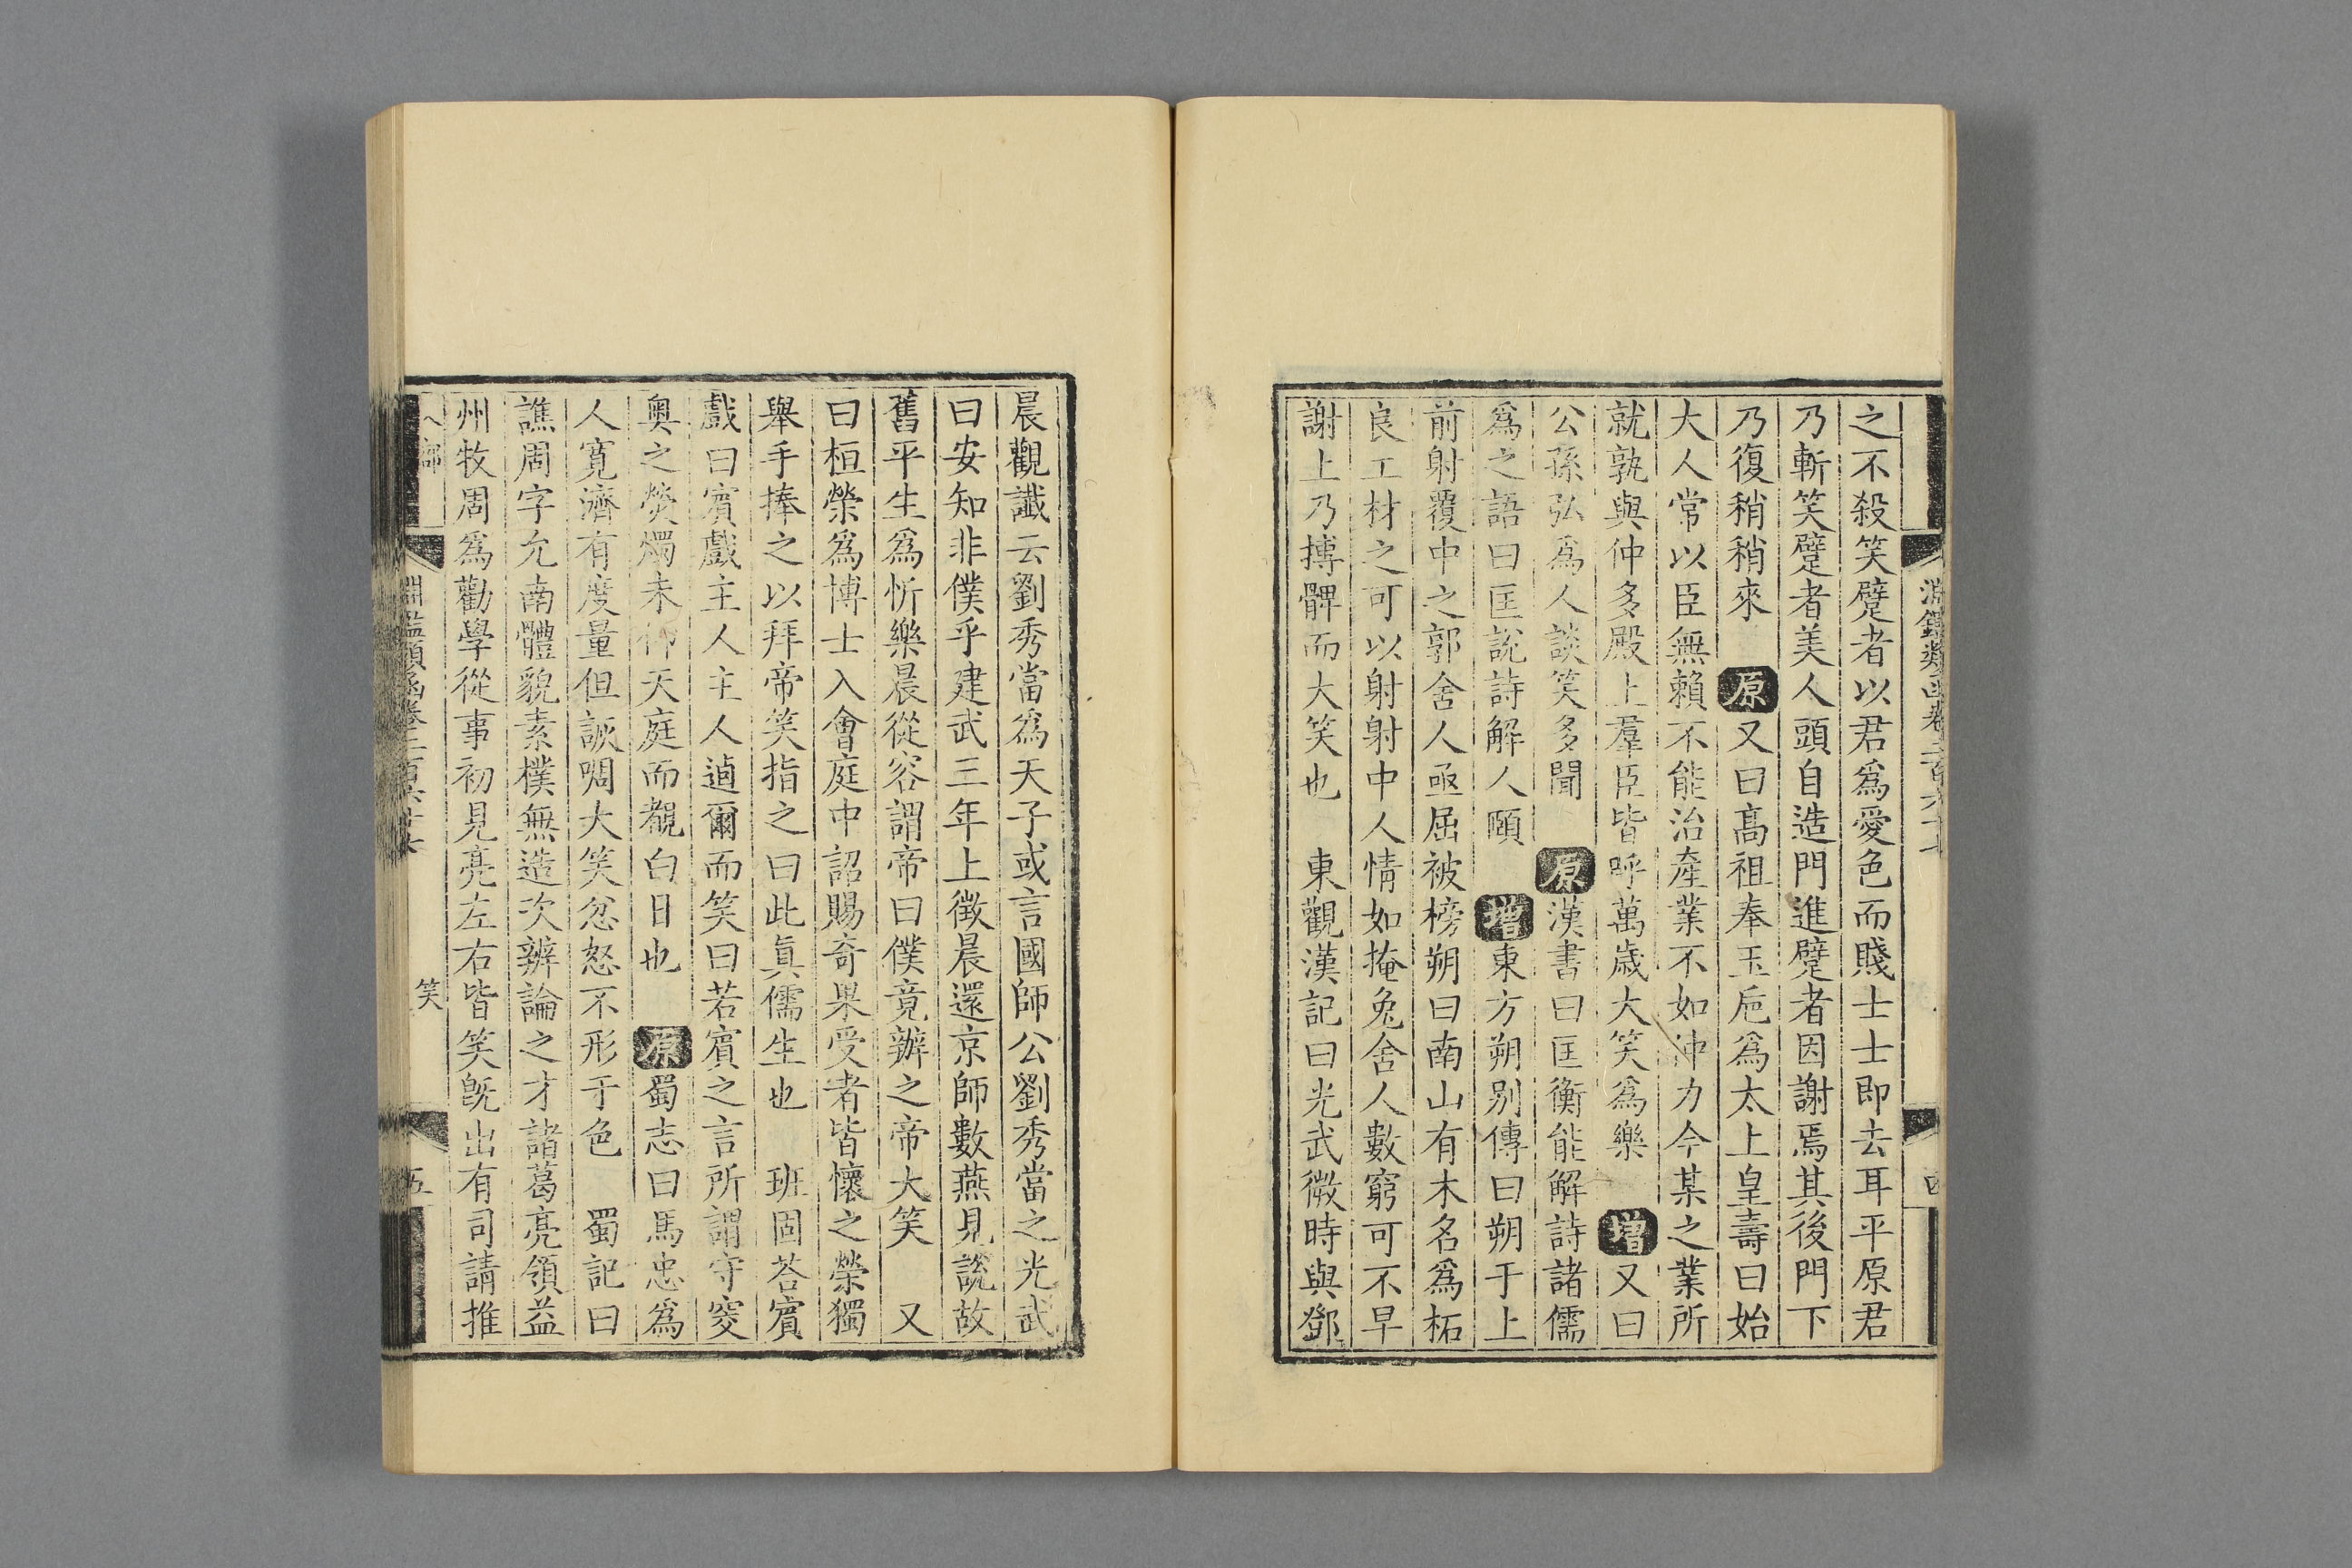 之不殺笑躄者以君爲愛色而賤士士即去耳平原君
乃斬笑躄者美人頭自造門進躄者因謝焉其後門下
乃復稍稍來 原又曰高祖奉玉卮爲太上皇壽曰始
大人常以臣無賴不能治產業不如仲力今某之業所
就孰與仲多殿上羣臣皆呼萬歲大笑爲樂 增又曰
公孫弘爲人談笑多聞 原漢書曰匡衡能解詩諸儒
爲之語曰匡說詩解人頤 增東方朔別傳曰朔于上
前射覆中之郭舍人亟屈被榜朔曰南山有木名爲柘
良工材之可以射射中人情如掩兔舍人數窮可不早
謝上乃搏髀而大笑也 東觀漢記曰光武微時與鄧
晨觀讖云劉秀當爲天子或言國師公劉秀當之光武
曰安知非僕乎建武三年上徵晨還京師數燕見說故
舊平生爲忻樂晨從容謂帝曰僕竟辦之帝大笑 又
曰桓榮爲博士入會庭中詔賜奇果受者皆懷之榮獨
舉手捧之以拜帝笑指之曰此眞儒生也 班固荅賓
戲曰賓戲主人主人逌爾而笑曰若賓之言所謂守窔
奥之熒燭未仰天庭而覩白日也 原蜀志曰馬忠爲
人寬濟有度量但詼啁大笑忿怒不形于色 蜀記曰
譙周字允南體貌素樸無造次辨論之才諸葛亮領益
州牧周爲勸學從事初見亮左右皆笑旣出有司請推
笑
五